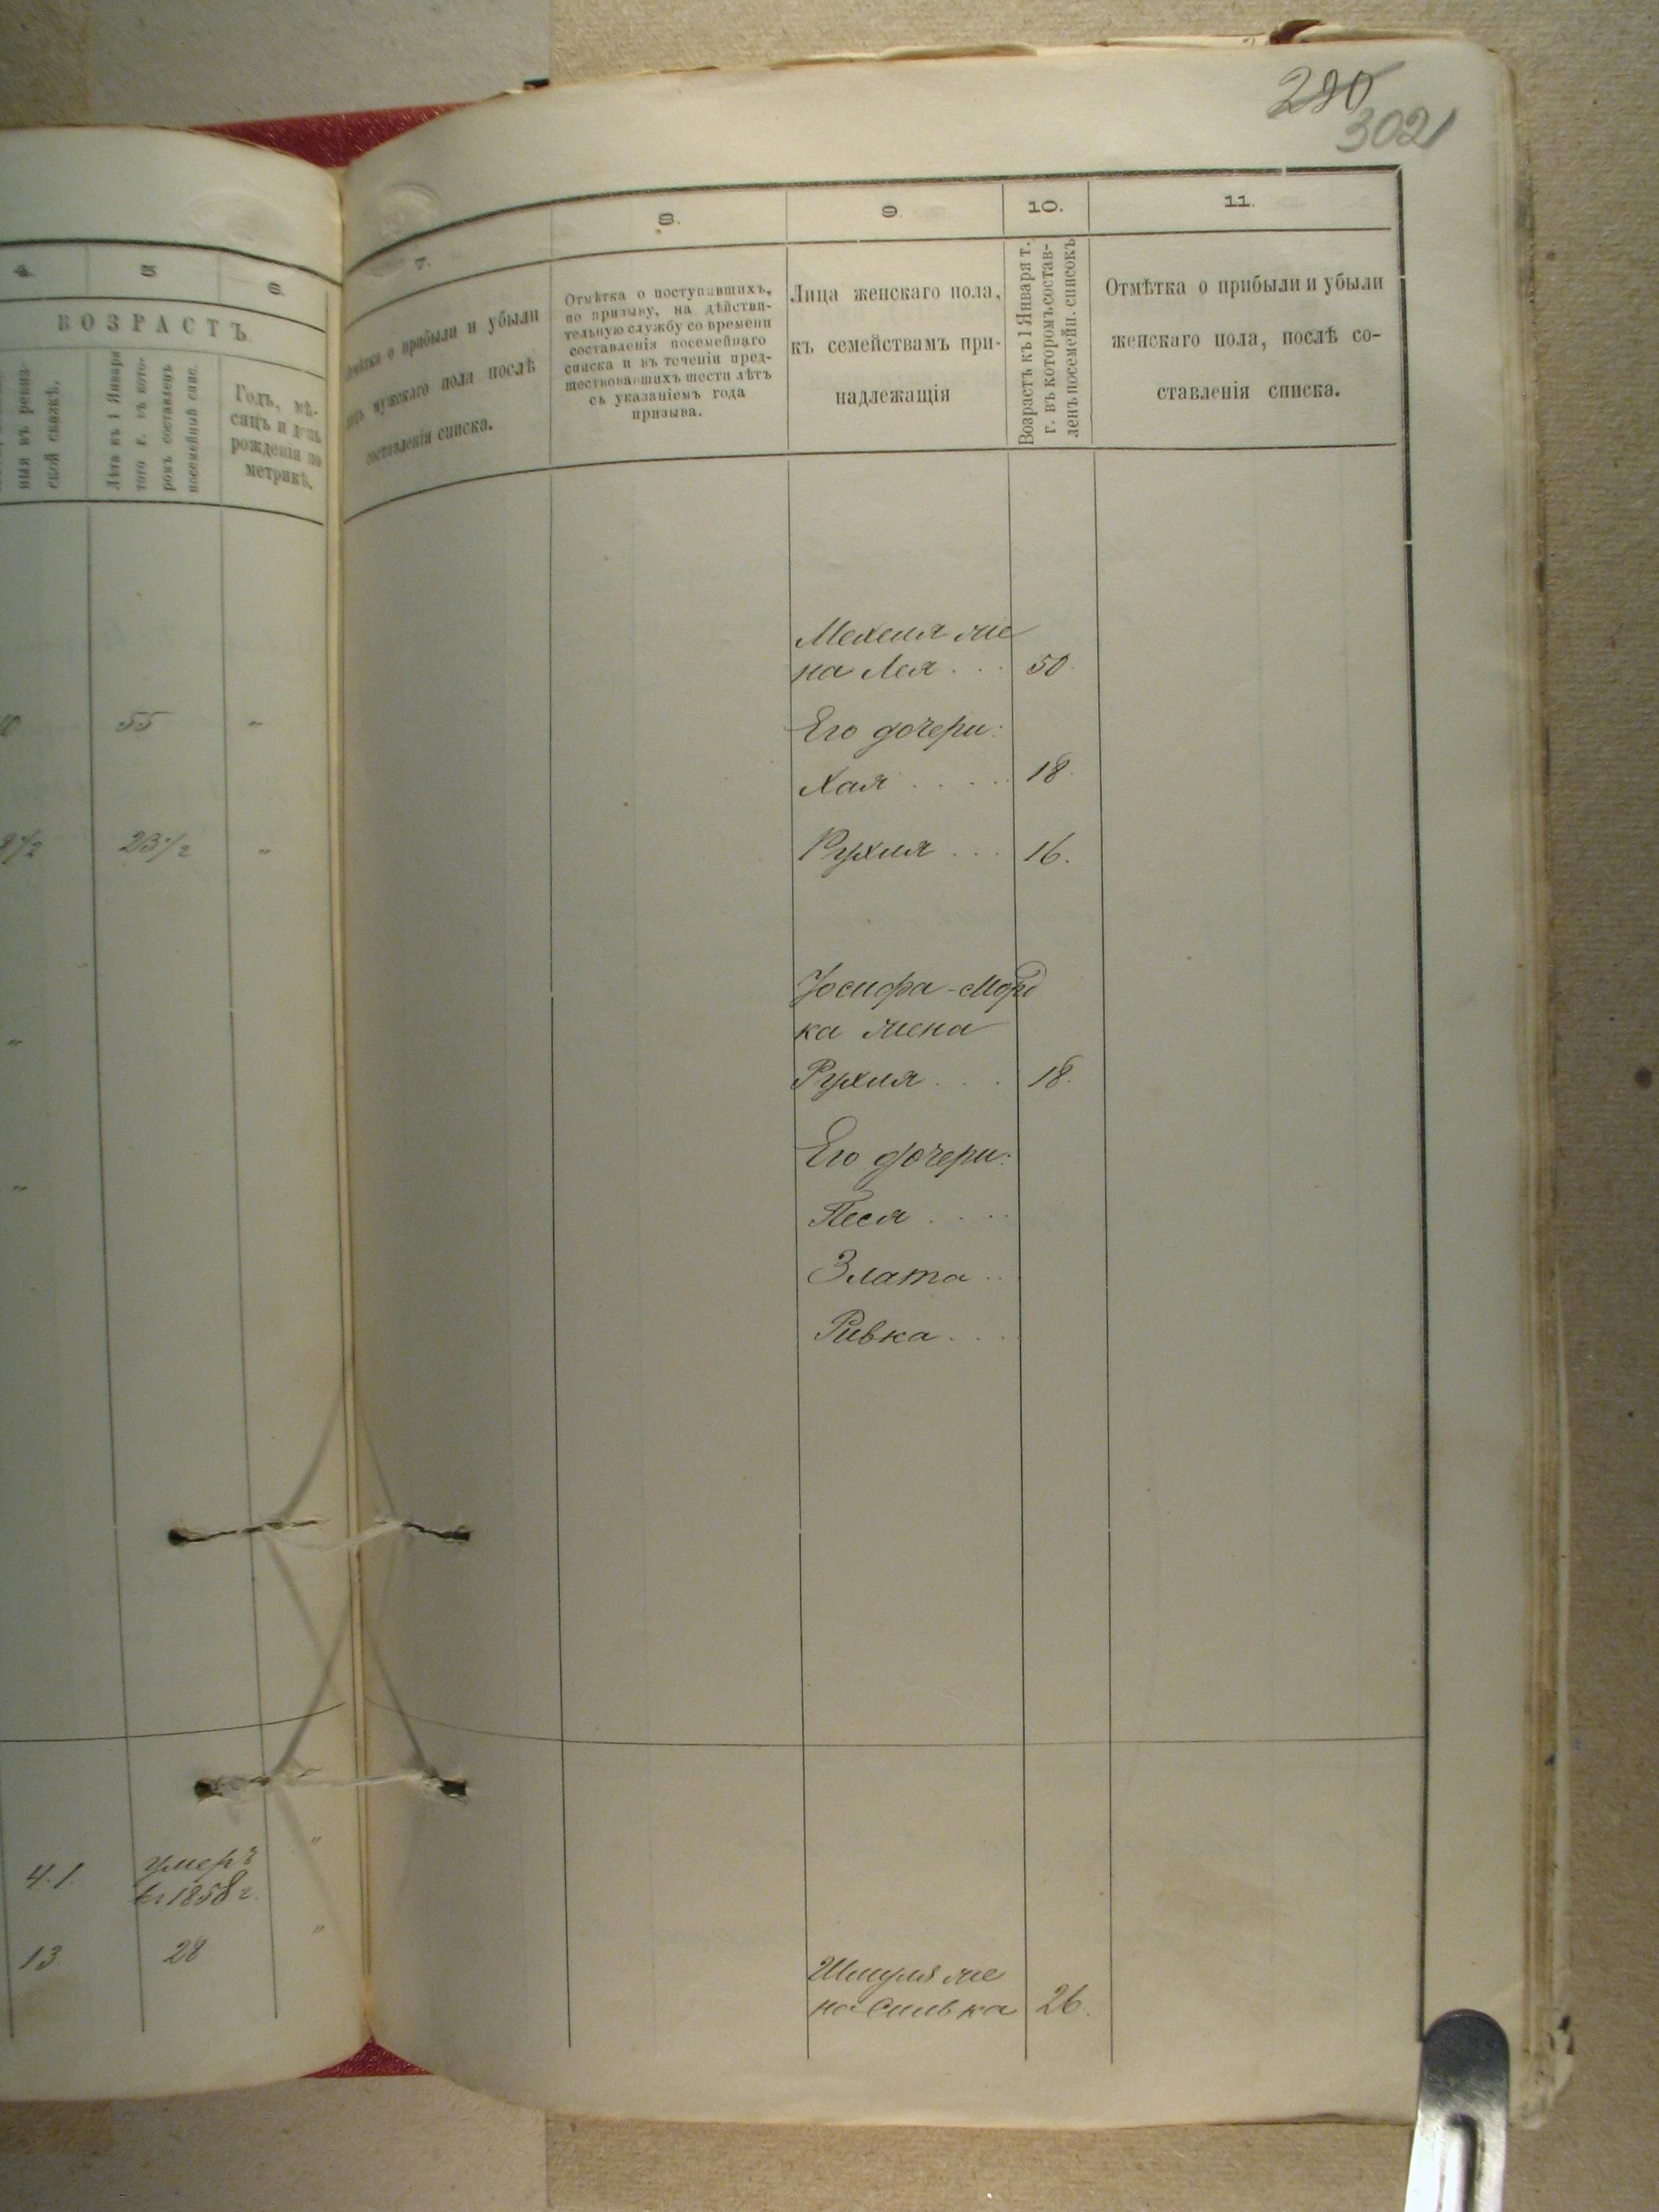 290
302
4.
5
6.
ВОЗРАСТЪ
ныя въ ревиз-
ской сказкѣ.
Лѣта къ 1 Января
того г. въ кото-
ромъ составленъ
посемейный спис.
Годъ, мѣ-
сяцъ и день
рожденія по
метрикѣ.
55
"
8 1/2
23 1/2
"
"
"
4.1
умеръ
въ 1858 г.
"
13
28
"
7.
8.
9
10.
11.
о прибыли и убыли
мужскаго пола послѣ
составленія списка.
Отмѣтка о поступившихъ,
по призыву, на дѣйстви-
тельную службу со времени
составленія посемейнаго
списка и въ теченіи пред-
шествовавшихъ шести лѣтъ
съ указаніемъ года
призыва.
Лица женскаго пола,
къ семействамъ при-
надлежащія
Возрастъ къ 1 Января т.
г. въ которомъ состав-
ленъ посемейн. списокъ
Отмѣтка о прибыли и убыли
женскаго пола, послѣ со-
ставленія списка.
Мехеля же
на Лея . . . 50.
Его дочери:
Хая . . . . 18.
Рухля . . . 16.
Іосифа-Морд
ка жена
Рухля . . . 18.
Его дочери:
Песя . . . .
Злата . .
Ривка . . .
Шмуля же
на Сливка 26.